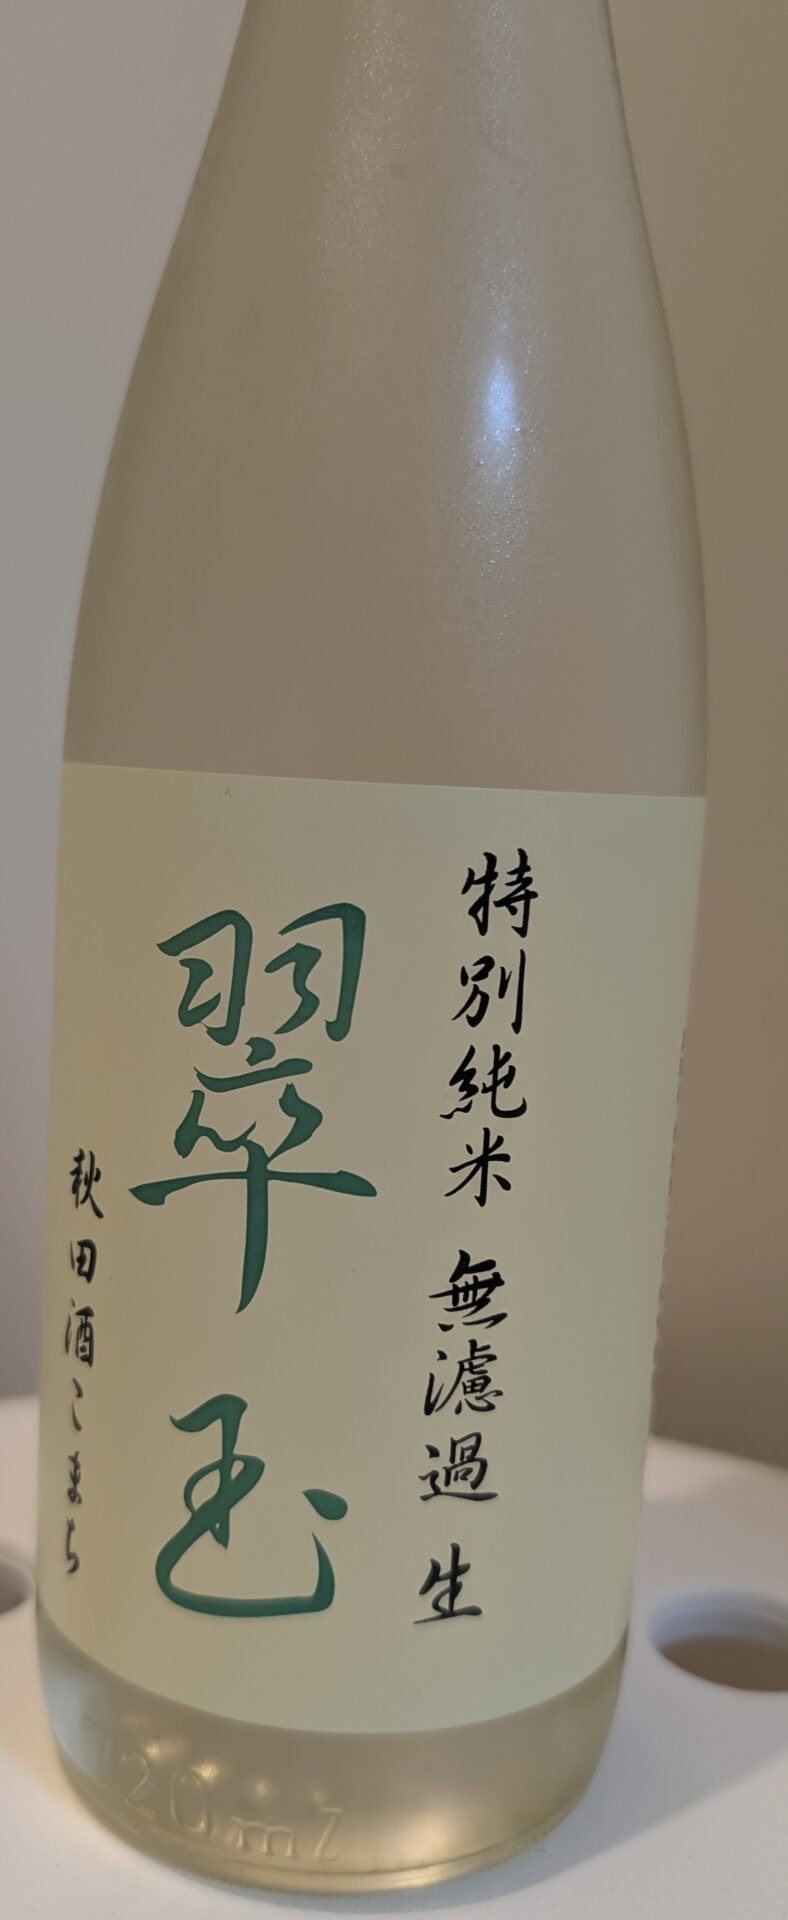 特別純米 無濾過 生
翠玉
秋田酒こまち
720ml